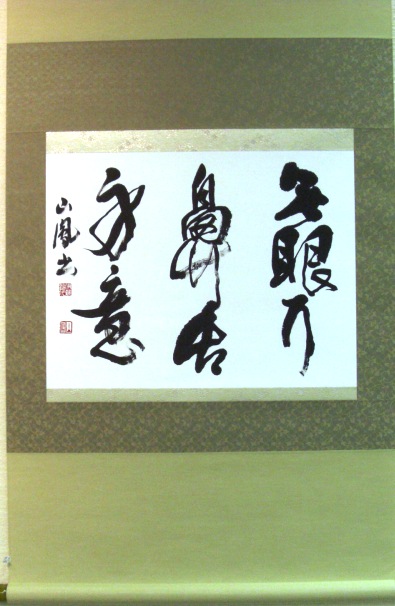 無眼耳
鼻舌
身意
山鳳書